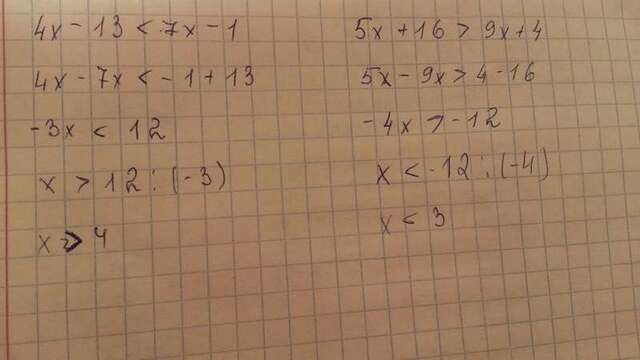 4x - 13 < 7x - 1
4x - 7x < - 1 + 13
-3x < 12
x > 12 : (-3)
x > 4
5x + 16 > 9x + 4
5x - 9x > 4 - 16
-4x > -12
x < -12 : (-4)
x < 3